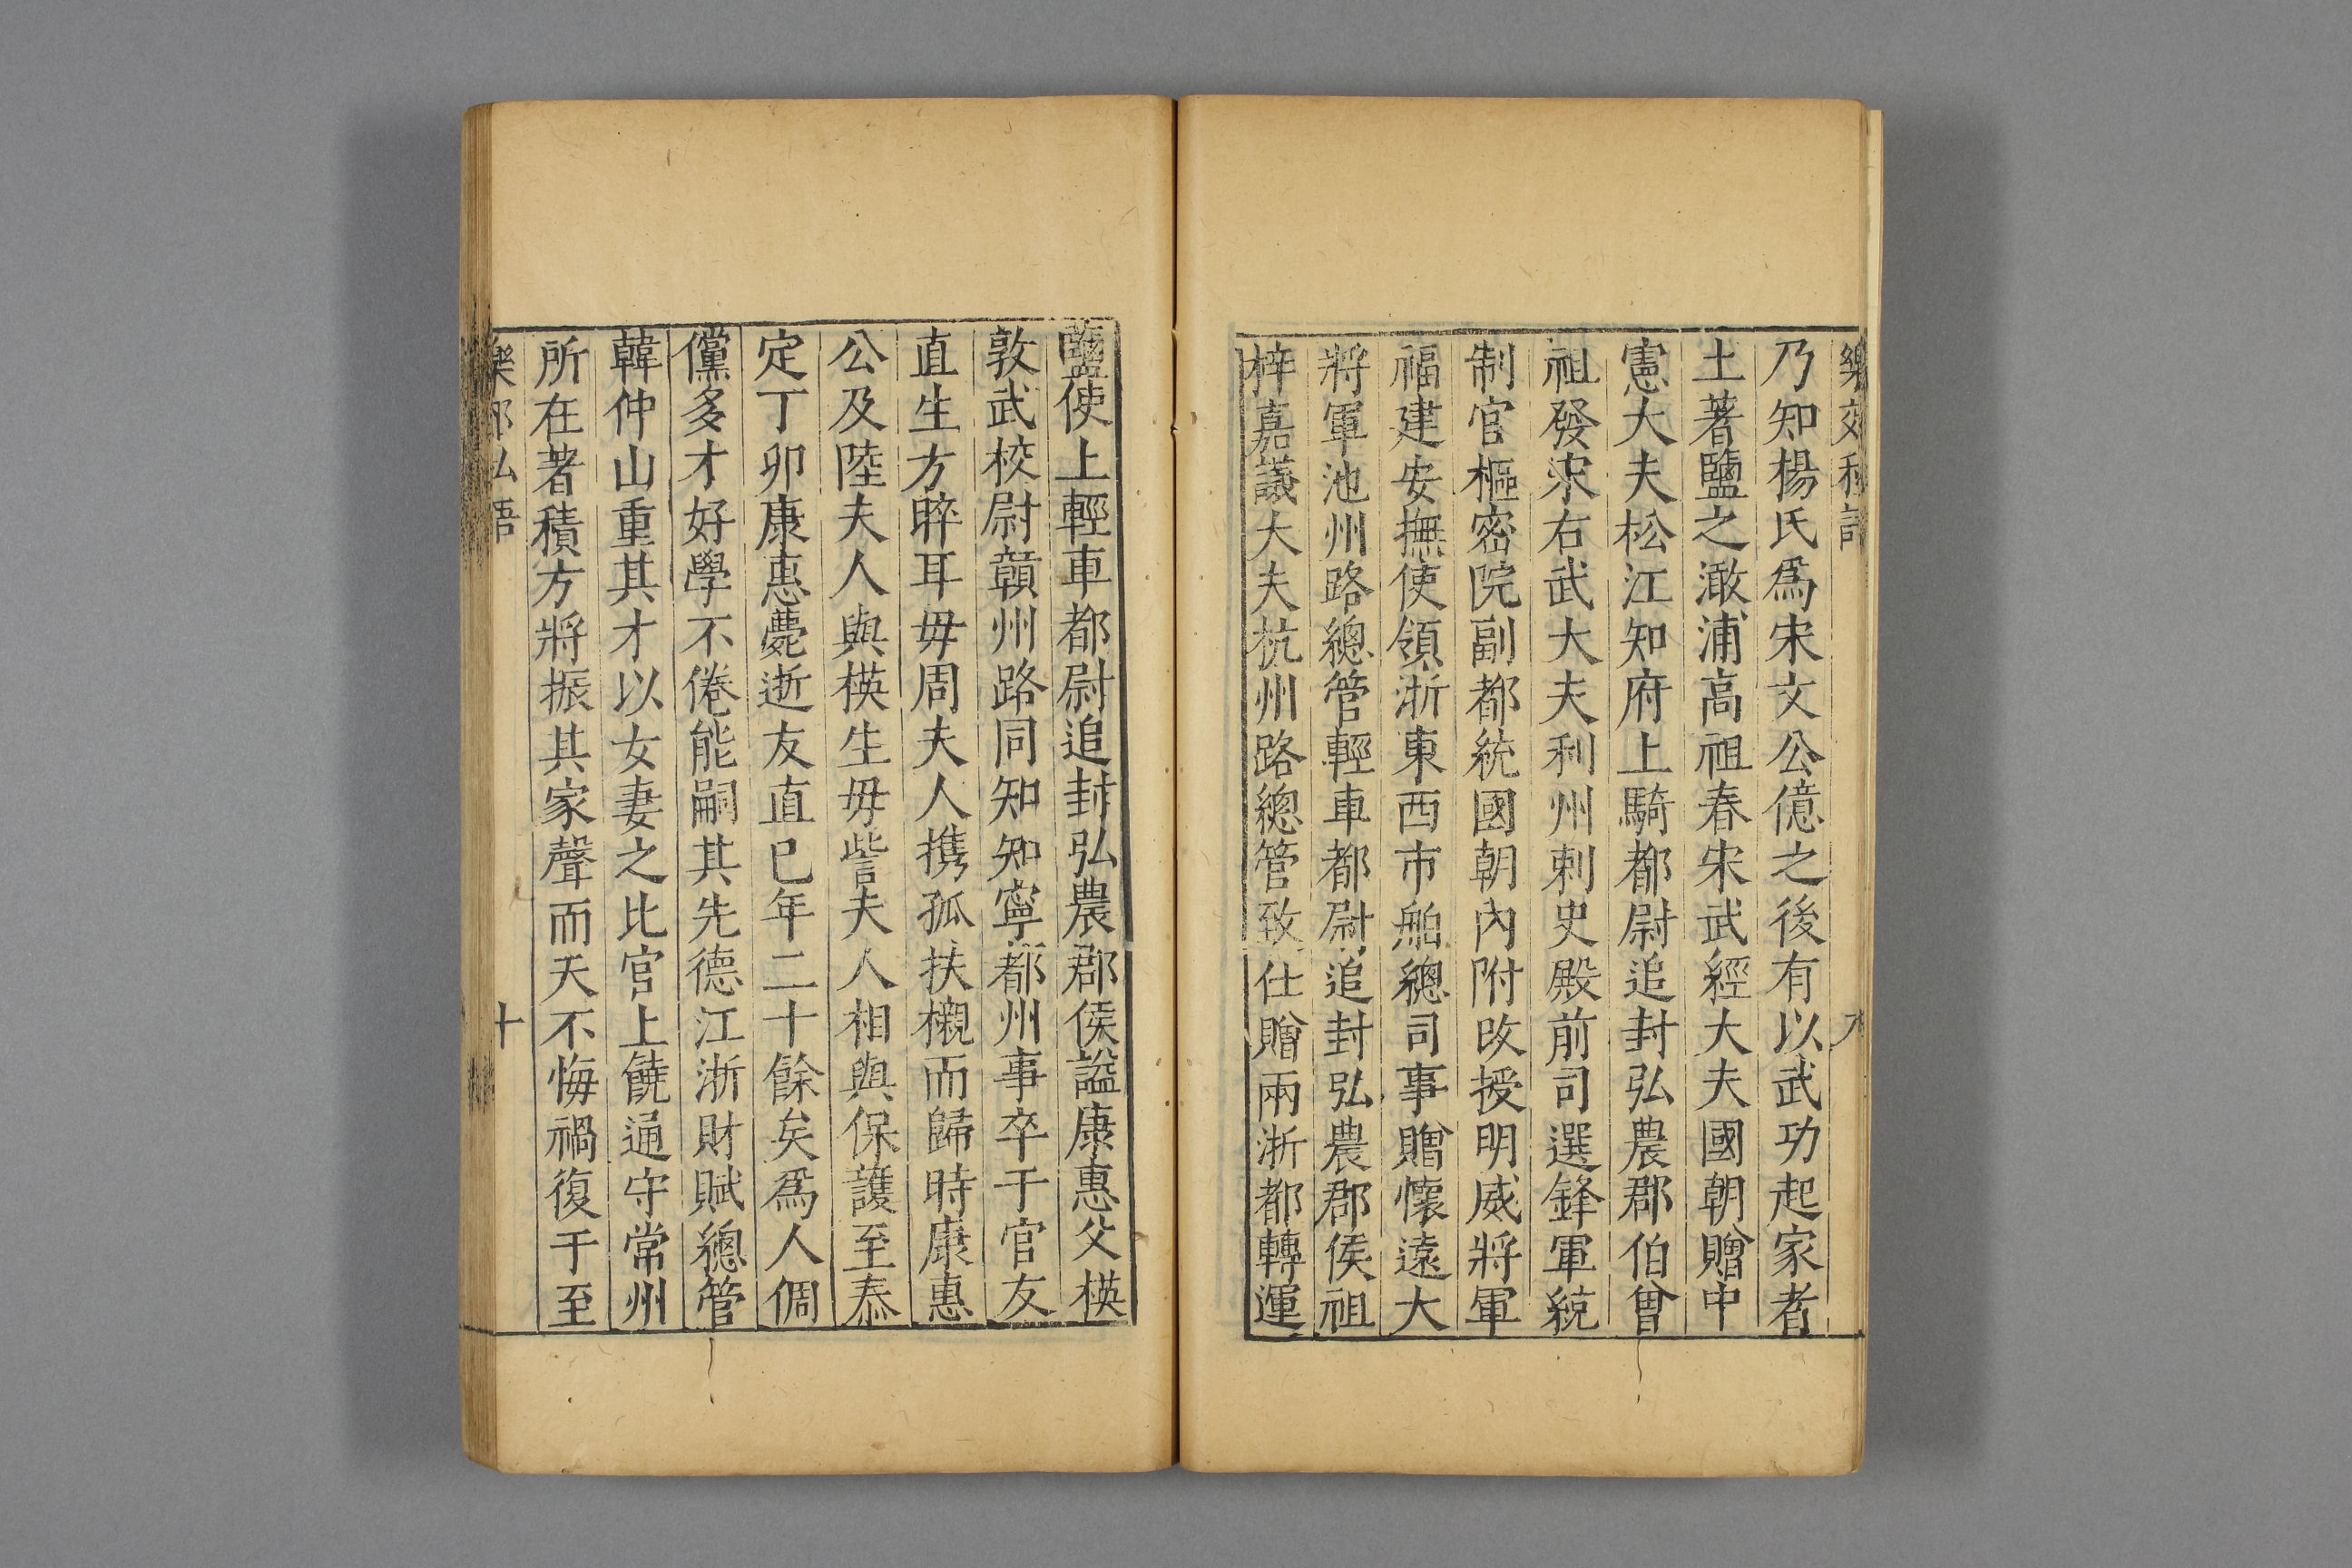 樂郊私語
乃知楊氏爲宋文公億之後有以武功起家者
土著鹽之澉浦高祖春宋武經大夫國朝贈中
憲大夫松江知府上騎都尉追封弘農郡伯曾
祖發宋右武大夫利州刺史殿前司選鋒軍統
制官樞密院副都統國朝內附改授明威將軍
福建安撫使領浙東西市舶總司事贈懷遠大
將軍池州路總管輕車都尉追封弘農郡侯祖
梓嘉議大夫杭州路總管致仕贈兩浙都轉運
鹽使上輕車都尉追封弘農郡侯謚康惠父楧
敦武校尉贑州路同知知寧都州事卒于官友
直生方晬耳毋周夫人携孤扶櫬而歸時康惠
公及陸夫人與楧生毋訾夫人相與保護至泰
定丁卯康惠薨逝友直已年二十餘矣爲人倜
儻多才好學不倦能嗣其先德江浙財賦總管
韓仲山重其才以女妻之比官上饒通守常州
所在著積方將振其家聲而天不悔禍復于至
樂郊私語
十